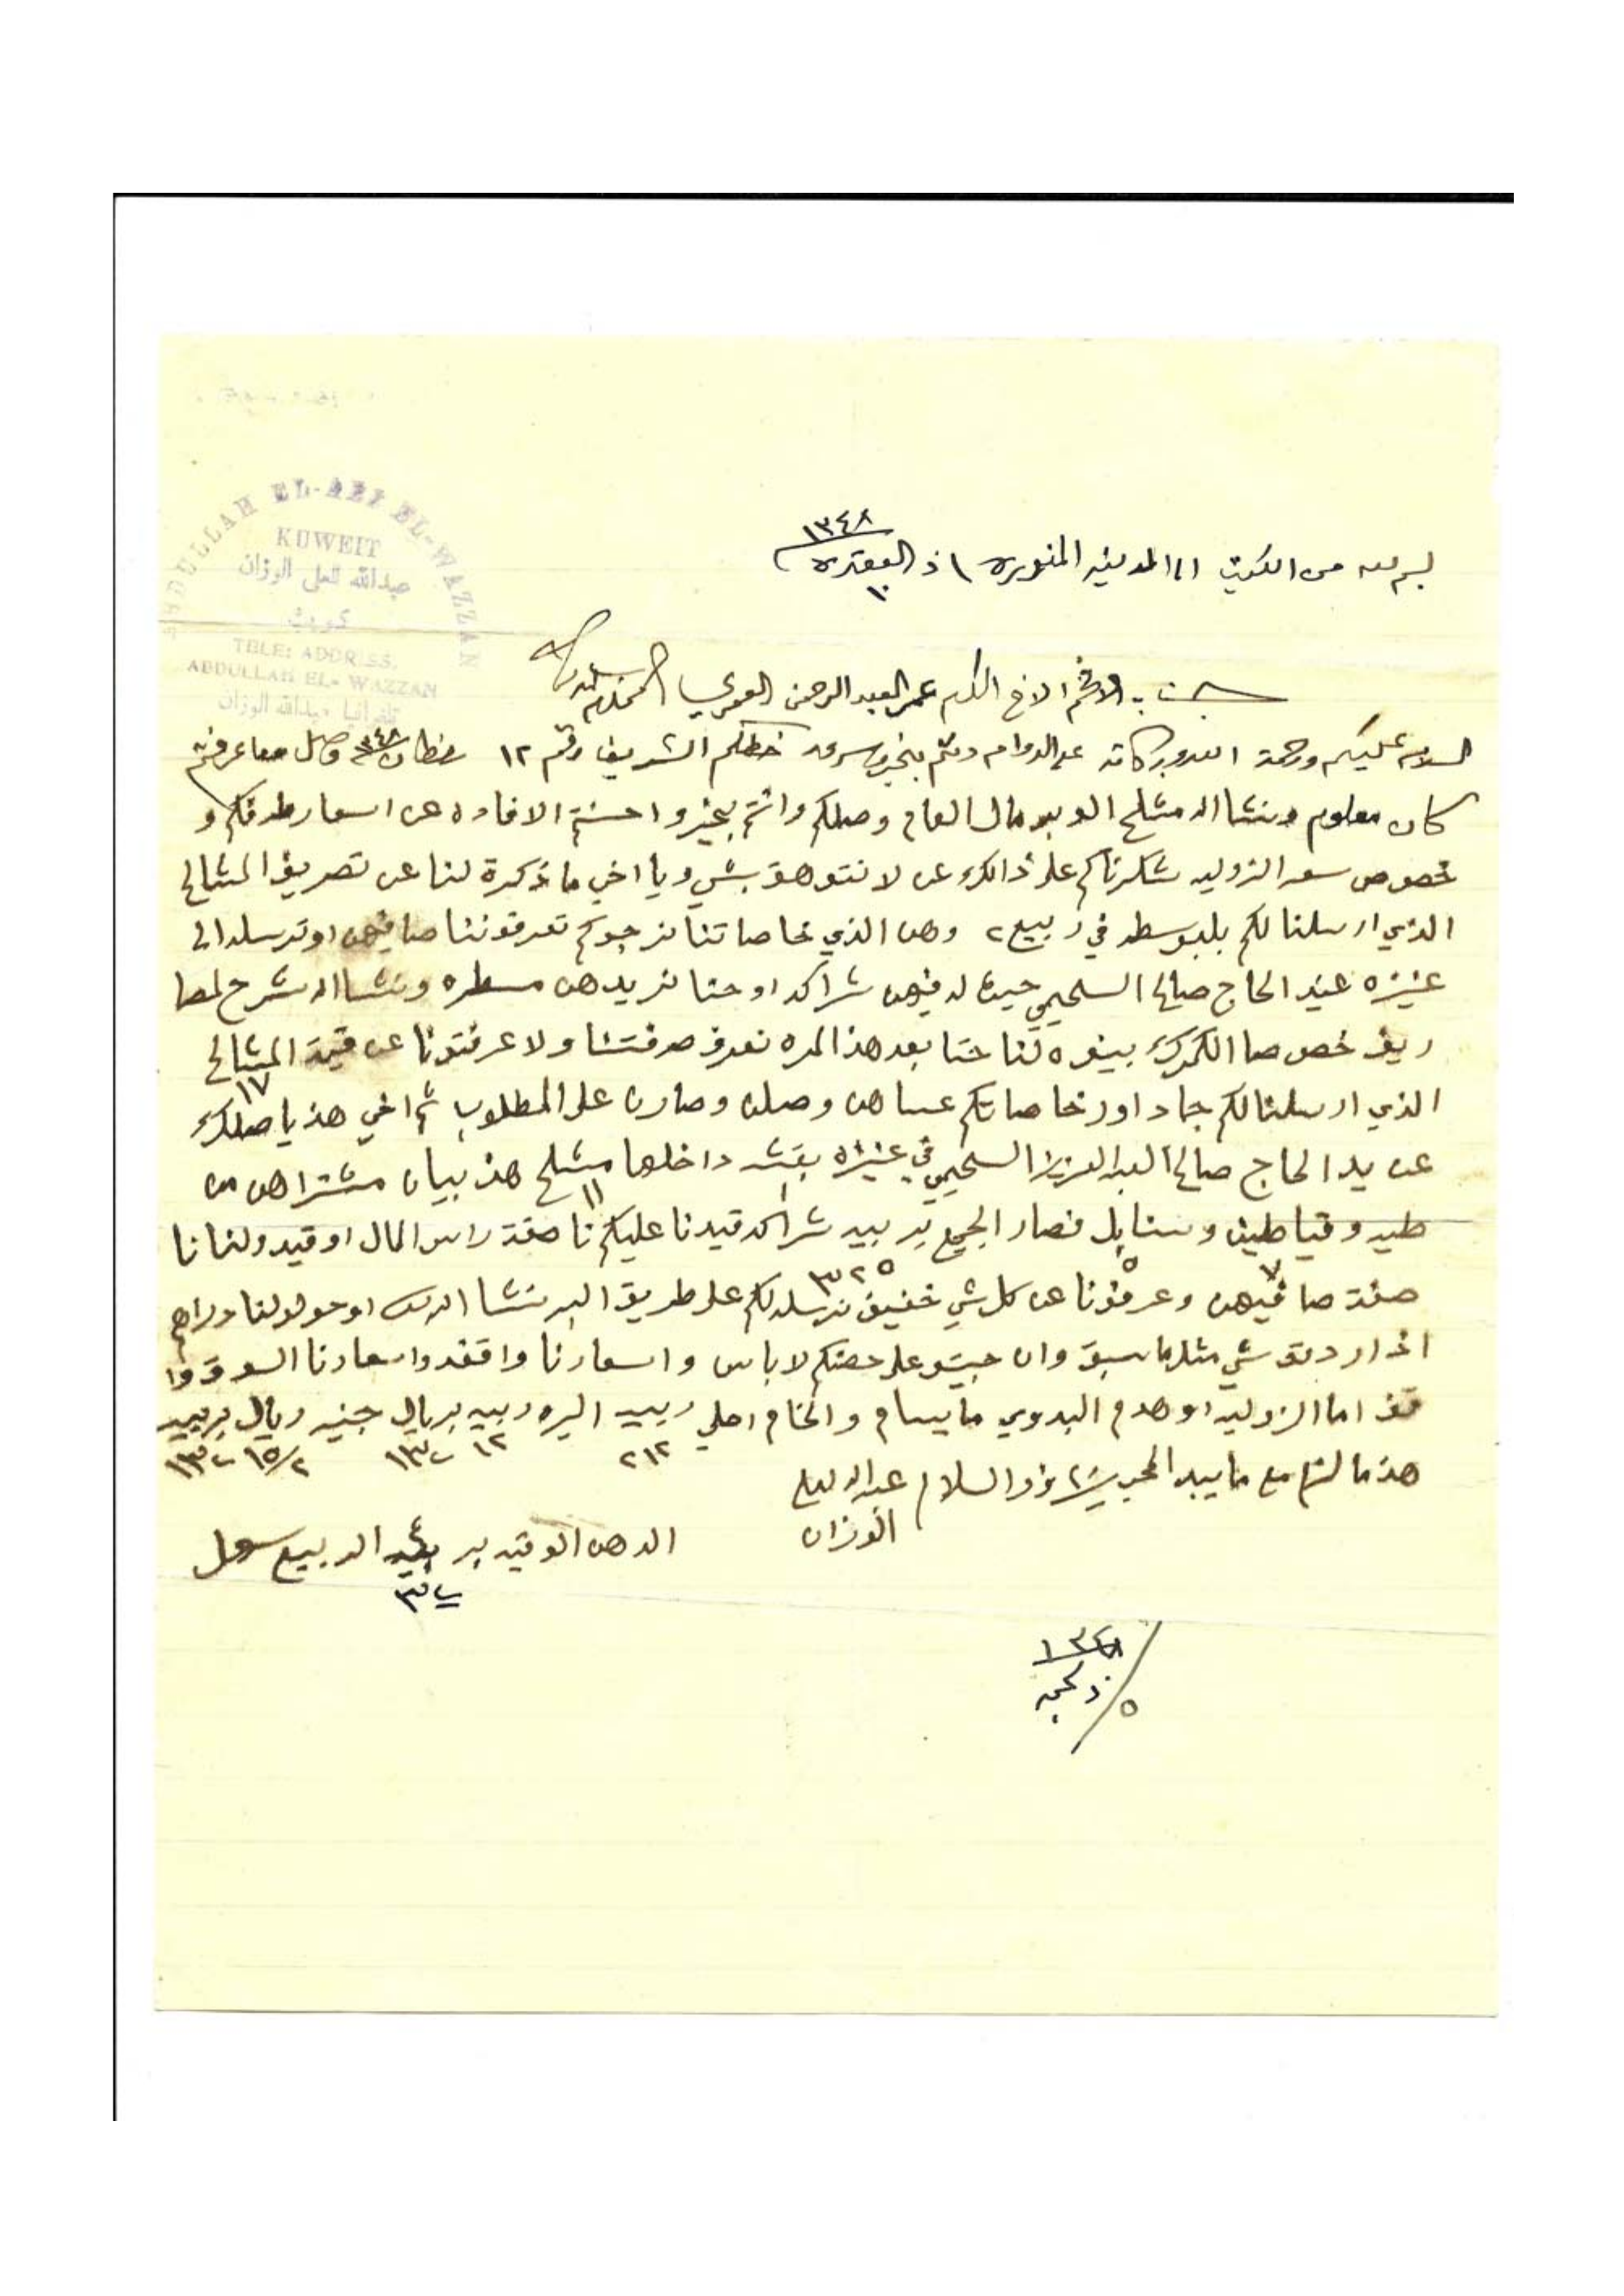 ABDULLAH EL-ALI EL-WAZZAN
KUWEIT
عبدالله العلي الوزان
كويت
TELE: ADDRESS.
ABDULLAH EL-WAZZAN
تلغرافيا عبدالله الوزان
١٣٤٨
بسم الله من الكويت الى المدينه المنوره ١ ذ القعده
١٠
جناب الافخم الاخ المكرم عمر العبد الرحمن العمري المحترم سلمه الله
السلام عليكم ورحمة الله وبركاته على الدوام ودمتم بخير وسرور خطكم الشريف رقم ١٢ رمضان ١٣٤٨ وصل وما عرفتم
كان معلوم ونشا الله مشلح الوبر مال العام وصلكم وانتم بخير واحسنتم الافاده عن اسعار طرفكم و
خصوص سعر الزوليه شكرناكم على ذالك عن لا نتوهق بشي ويا اخي ما ذكرة لنا عن تصريف المشالح
الذي ارسلنا لكم بلبوسطه في ربيع ٢ وهن الذي خاصاتنا نرجوكم تعرفوننا صافيهن او ترسله الى
عنيزه عند الحاج صالح السحيمي حيث له فيهن شراكه او حنا نريدهن مسطره ونشا الله نشرح لمصا
ريف خصوصا الكمرك بينوه لنا حتا بعد هذ المره نعرف صرفتنا ولا عرفتونا عن قيمة المشالح
الذي ارسلنا لكم جماد اول خاصاتكم عساهن وصلن وصارن على المطلوب ثم اخي هذ ياصلك
١٧
عن يد الحاج صالح العبد العزيز السحيمي في عنيزه بقشه داخلها مشلح هذ بيان مشتراهن من
١ ١١
طيه وقياطين وسنابل فصار الجميع بربيه شراكه قيدنا عليكم ناصفة راس المال او قيدو لنا نا
٣٢٥ ٥ ٧
صفة صافيهن وعرفونا عن كل شي خفيف نرسله لكم على طريق البر نشا الله او حولو لنا دراهم
اذا ردتو شي مثل ما سبق وان حبيتو على حضكم لا باس واسعارنا واقفه واسعارنا السوق وا
قف اما الزوليه او هدم البدوي ما يسام والخام اصلي ربيه اليره ربيه بريال جنيه ريال بربيه
٢١٢ ١٢ ١٣ ١٥/٢ ١٣
هذ ما لزم مع ما يبدا لمحبك والسلام عبدالله العلي
الوزان
الدهن الوقيه بر بيه الربيع سهل
٤
٣
١٣٤٨
٥ / ذ لحجه